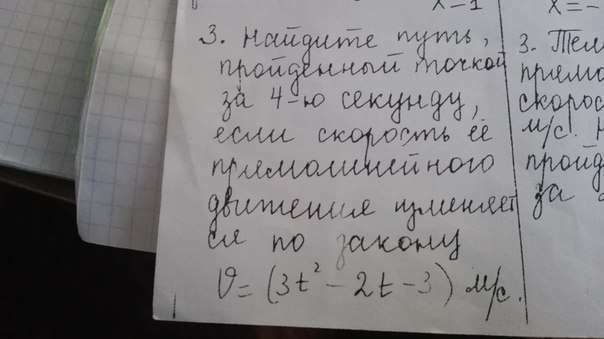 x=1
3. Найдите путь,
пройденный точкой
за 4-ю секунду,
если скорость её
прямолинейного
движения изменяет
ся по закону
υ= (3t² - 2t - 3) м/с.
x=-
3. Тел
прямо
скорос
м/с. Н
пройд
за